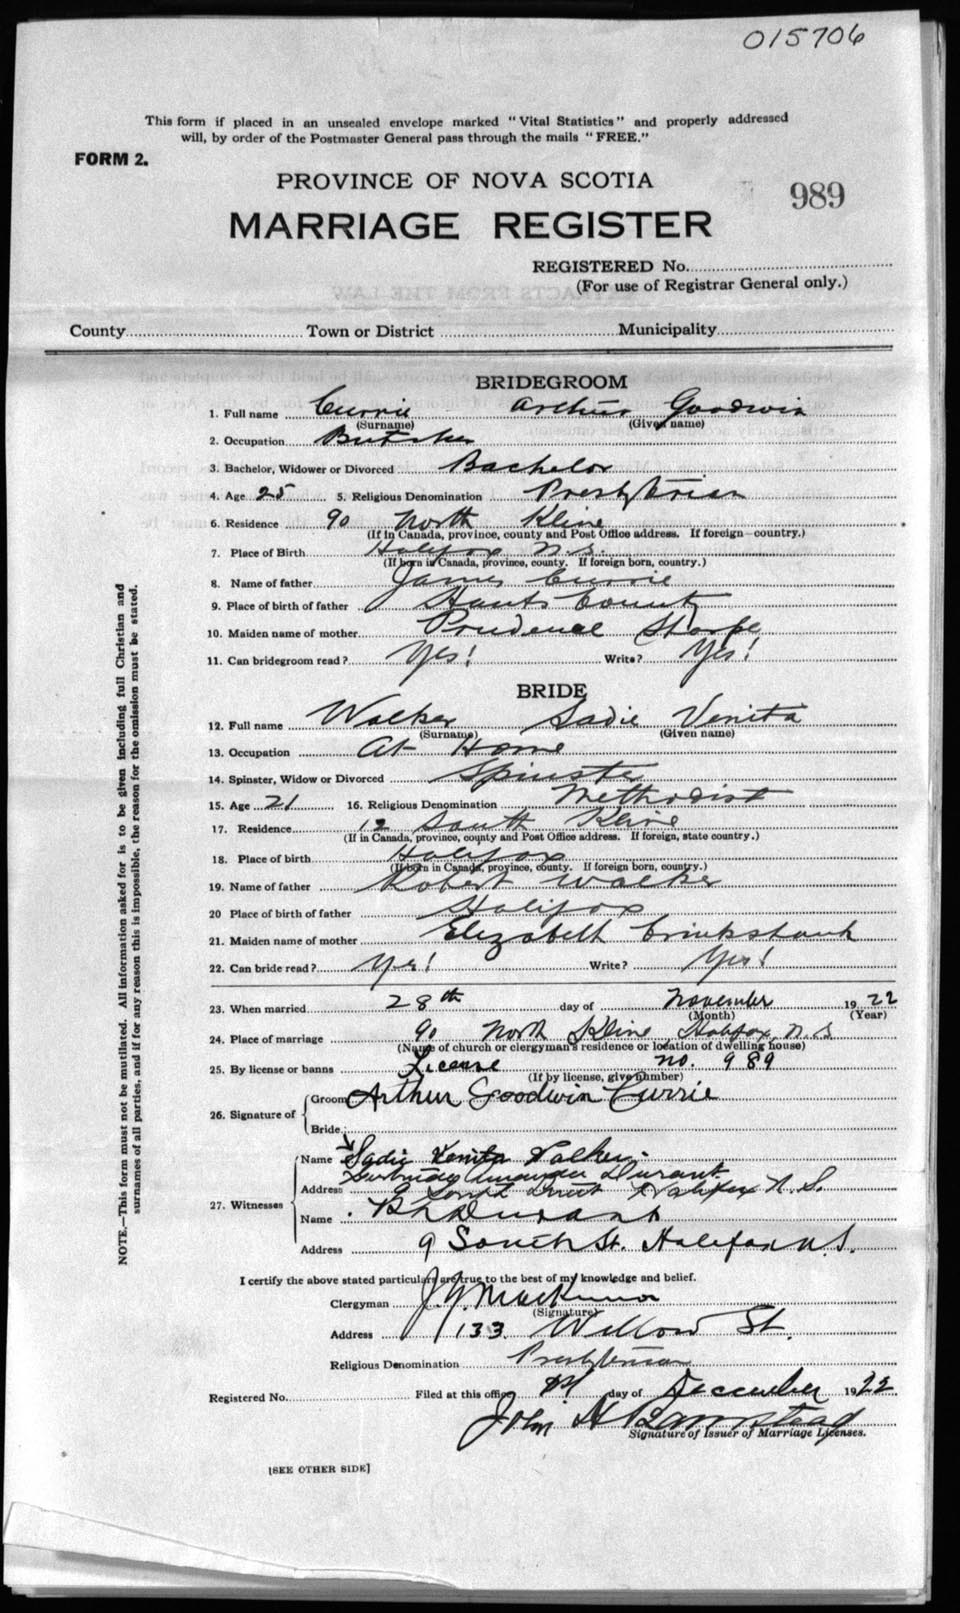 015706
This form if placed in an unsealed envelope marked "Vital Statistics" and properly addressed
will, by order of the Postmaster General pass through the mails "FREE."
FORM 2.
PROVINCE OF NOVA SCOTIA
989
MARRIAGE REGISTER
REGISTERED No.
(For use of Registrar General only.)
County Town or District Municipality
BRIDEGROOM
1. Full name Currie Arthur Goodwin
(Surname) (Given name)
2. Occupation Butcher
3. Bachelor, Widower or Divorced Bachelor
4. Age 25 5. Religious Denomination Presbyterian
6. Residence 90 North Kline
(If in Canada, province, county and Post Office address. If foreign—country.)
7. Place of Birth Halifax N.S.
(If born in Canada, province, county. If foreign born, country.)
8. Name of father James Currie
9. Place of birth of father Hants County
10. Maiden name of mother Prudence Sharpe
11. Can bridegroom read? Yes! Write? Yes!
BRIDE
12. Full name Walker Sadie Venita
(Surname) (Given name)
13. Occupation At Home
14. Spinster, Widow or Divorced Spinster
15. Age 21 16. Religious Denomination Methodist
17. Residence 12 South Kline
(If in Canada, province, county and Post Office address. If foreign, state country.)
18. Place of birth Halifax
(If born in Canada, province, county. If foreign born, country.)
19. Name of father Robert Walker
20 Place of birth of father Halifax
21. Maiden name of mother Elizabeth Crinkshank
22. Can bride read? Yes! Write? Yes!
23. When married 28th day of November 1922
(Month) (Year)
24. Place of marriage 90 North Kline Halifax, N.S
(Name of church or clergyman's residence or location of dwelling house)
25. By license or banns License no. 989
(If by license, give number)
26. Signature of Groom Arthur Goodwin Currie
Bride
27. Witnesses Name Sadie Venita Walker
Durant
Address 9 South Street Halifax N.S.
Name Durant
Address 9 South St. Halifax N.S.
I certify the above stated particulars are true to the best of my knowledge and belief.
Clergyman J. MacKinnon
(Signature)
Address 133 Willow St.
Religious Denomination Presbyterian
Registered No. Filed at this office day of December 1922.
John H Barnstead
Signature of Issuer of Marriage Licenses.
[SEE OTHER SIDE]
NOTE.—This form must not be mutilated. All information asked for is to be given including full Christian and
surnames of all parties, and if for any reason this is impossible, the reason for the omission must be stated.